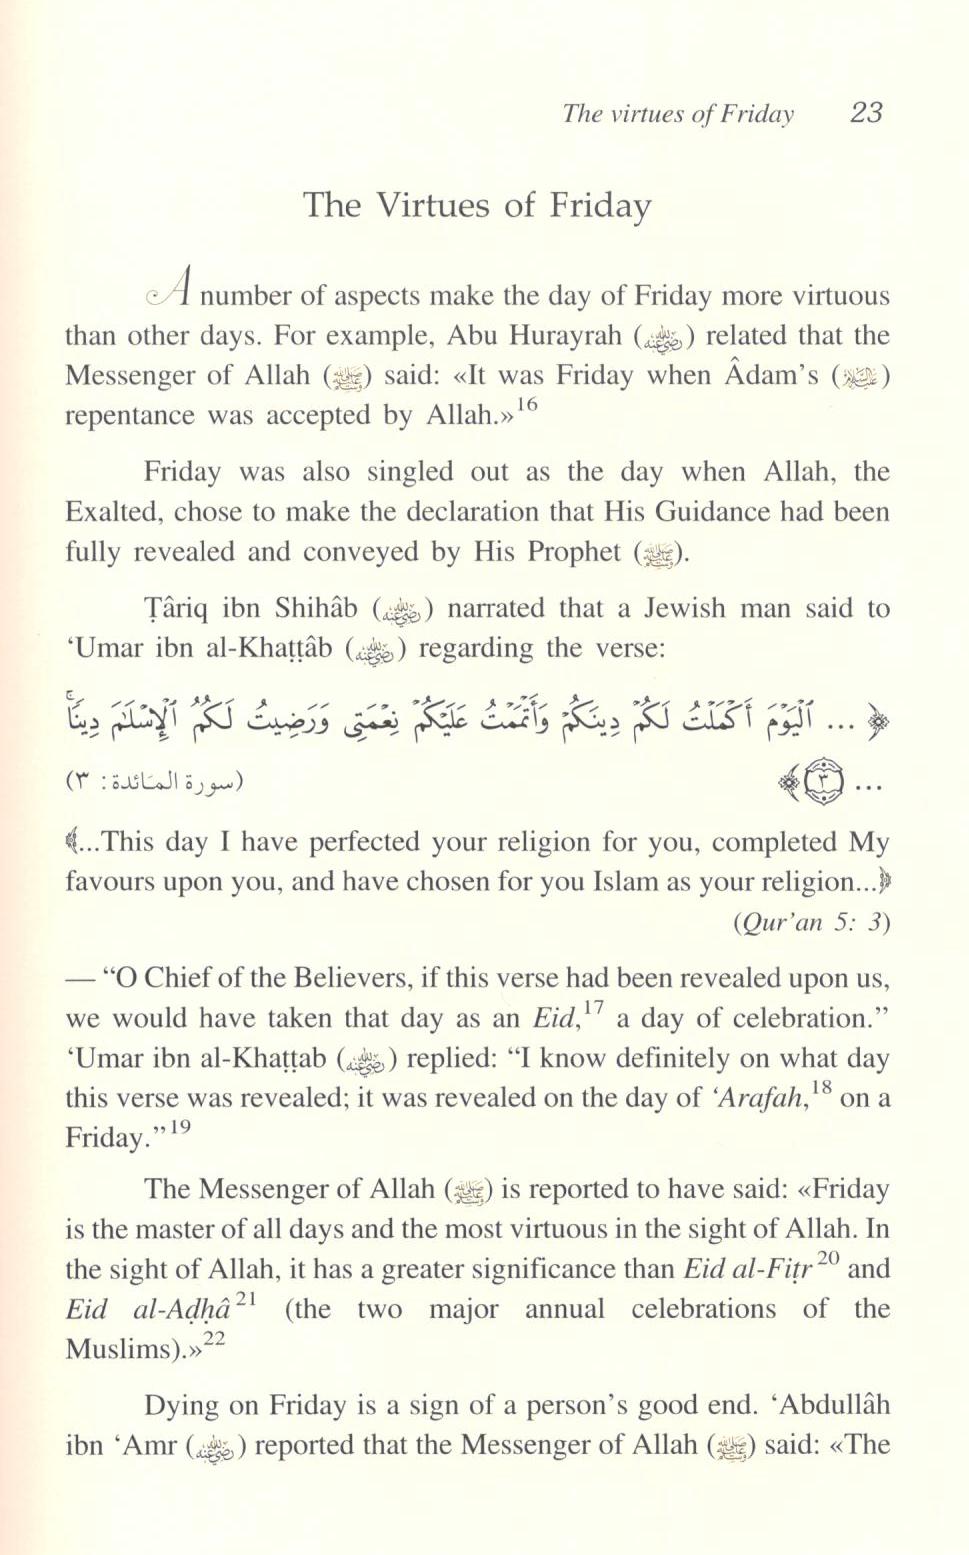 The virtues of Friday 23
The Virtues of Friday
A number of aspects make the day of Friday more virtuous
than other days. For example, Abu Hurayrah (رضي الله عنه) related that the
Messenger of Allah (ﷺ) said: «It was Friday when Âdam’s (عليه السلام)
repentance was accepted by Allah.»16
Friday was also singled out as the day when Allah, the
Exalted, chose to make the declaration that His Guidance had been
fully revealed and conveyed by His Prophet (ﷺ).
Ṭâriq ibn Shihâb (رضي الله عنه) narrated that a Jewish man said to
‘Umar ibn al-Khaṭṭâb (رضي الله عنه) regarding the verse:
﴿ ... ٱلْيَوْمَ أَكْمَلْتُ لَكُمْ دِينَكُمْ وَأَتْمَمْتُ عَلَيْكُمْ نِعْمَتِى وَرَضِيتُ لَكُمُ ٱلْإِسْلَـٰمَ دِينًاۚ
... ٣﴾ (سورة المائدة: ٣)
﴾...This day I have perfected your religion for you, completed My
favours upon you, and have chosen for you Islam as your religion...﴿
(Qur’an 5: 3)
— “O Chief of the Believers, if this verse had been revealed upon us,
we would have taken that day as an Eid,17 a day of celebration.”
‘Umar ibn al-Khaṭṭab (رضي الله عنه) replied: “I know definitely on what day
this verse was revealed; it was revealed on the day of ‘Arafah,18 on a
Friday.”19
The Messenger of Allah (ﷺ) is reported to have said: «Friday
is the master of all days and the most virtuous in the sight of Allah. In
the sight of Allah, it has a greater significance than Eid al-Fiṭr20 and
Eid al-Aḍḥâ21 (the two major annual celebrations of the
Muslims).»22
Dying on Friday is a sign of a person’s good end. ‘Abdullâh
ibn ‘Amr (رضي الله عنه) reported that the Messenger of Allah (ﷺ) said: «The